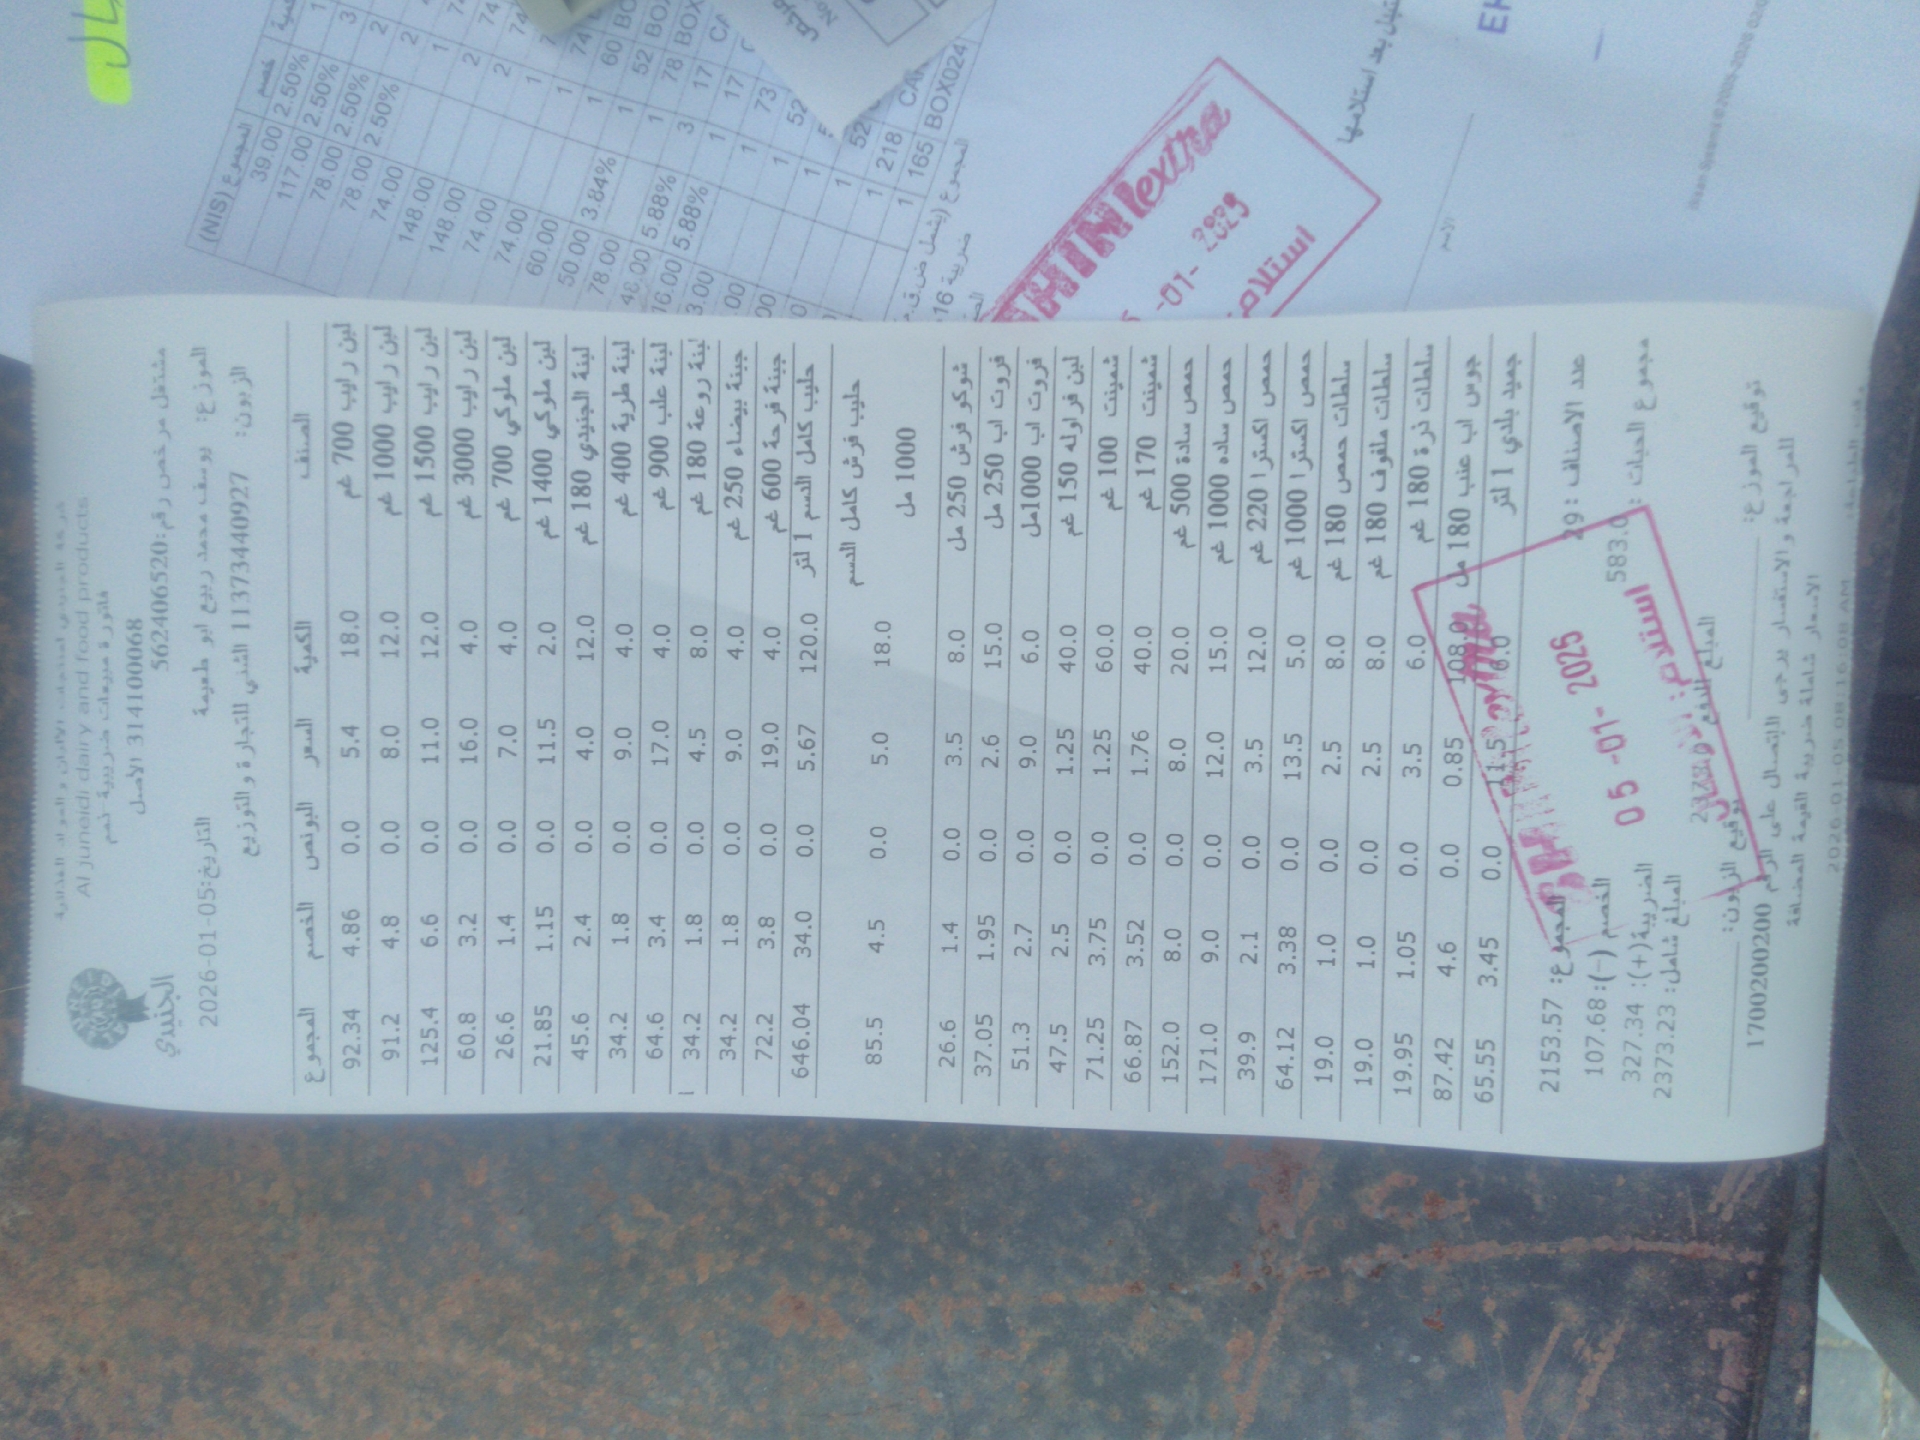 شركة الجنيدي لمنتجات الالبان و المواد الغذائية
Al juneidi dairy and food products
فاتورة مبيعات ضريبية نسم
3141100068 الاصل
مشتغل مرخص رقم:562406520
الجنيدي
التاريخ:2026-01-05 الموزع: يوسف محمد ربيع ابو طعيمة
الزبون: 11373440927 الثني للتجارة و التوزيع
الصنف الكمية السعر البونص الخصم المجموع
لبن رايب 700 غم 18.0 5.4 0.0 4.86 92.34
لبن رايب 1000 غم 12.0 8.0 0.0 4.8 91.2
لبن رايب 1500 غم 12.0 11.0 0.0 6.6 125.4
لبن رايب 3000 غم 4.0 16.0 0.0 3.2 60.8
لبن ملوكي 700 غم 4.0 7.0 0.0 1.4 26.6
لبن ملوكي 1400 غم 2.0 11.5 0.0 1.15 21.85
لبنة الجنيدي 180 غم 12.0 4.0 0.0 2.4 45.6
لبنة طرية 400 غم 4.0 9.0 0.0 1.8 34.2
لبنة علب 900 غم 4.0 17.0 0.0 3.4 64.6
لبنة روعة 180 غم 8.0 4.5 0.0 1.8 34.2
جبنة بيضاء 250 غم 4.0 9.0 0.0 1.8 34.2
جبنة فرحة 600 غم 4.0 19.0 0.0 3.8 72.2
حليب كامل الدسم 1 لتر 120.0 5.67 0.0 34.0 646.04
حليب فرش كامل الدسم 1000 مل 18.0 5.0 0.0 4.5 85.5
شوكو فرش 250 مل 8.0 3.5 0.0 1.4 26.6
فروت اب 250 مل 15.0 2.6 0.0 1.95 37.05
فروت اب 1000مل 6.0 9.0 0.0 2.7 51.3
لبن فراوله 150 غم 40.0 1.25 0.0 2.5 47.5
ثمينت 100 غم 60.0 1.25 0.0 3.75 71.25
ثمينت 170 غم 40.0 1.76 0.0 3.52 66.87
حمص سادة 500 غم 20.0 8.0 0.0 8.0 152.0
حمص ساده 1000 غم 15.0 12.0 0.0 9.0 171.0
حمص اكسترا 220 غم 12.0 3.5 0.0 2.1 39.9
حمص اكسترا 1000 غم 5.0 13.5 0.0 3.38 64.12
سلطات حمص 180 غم 8.0 2.5 0.0 1.0 19.0
سلطات ملفوف 180 غم 8.0 2.5 0.0 1.0 19.0
سلطات ذرة 180 غم 6.0 3.5 0.0 1.05 19.95
جوس اب عنب 180 مل 108.0 0.85 0.0 4.6 87.42
جميد بلدي 1 لتر 6.0 11.5 0.0 3.45 65.55
عدد الاصناف :29 المجموع: 2153.57
مجموع الحبات : 583.0 الخصم (-): 107.68
الضريبة(+): 327.34
المبلغ شامل: 2373.23
توقيع الموزع: توقيع الزبون:
للمراجعة و الاستفسار يرجى الاتصال على الرقم 1700200200
الاسعار شاملة ضريبة القيمة المضافة
2026-01-05 08:16:08 AM
05 -01- 2026
استلام:
HIN extra
-01-
استلام
المجموع (NIS) خصم
39.00 2.50%
117.00 2.50%
78.00 2.50%
78.00 2.50%
74.00
148.00
148.00
74.00
74.00
60.00
50.00 3.84%
78.00
48.00 5.88%
5.88%
218
165 BOX024
بعد استلامها